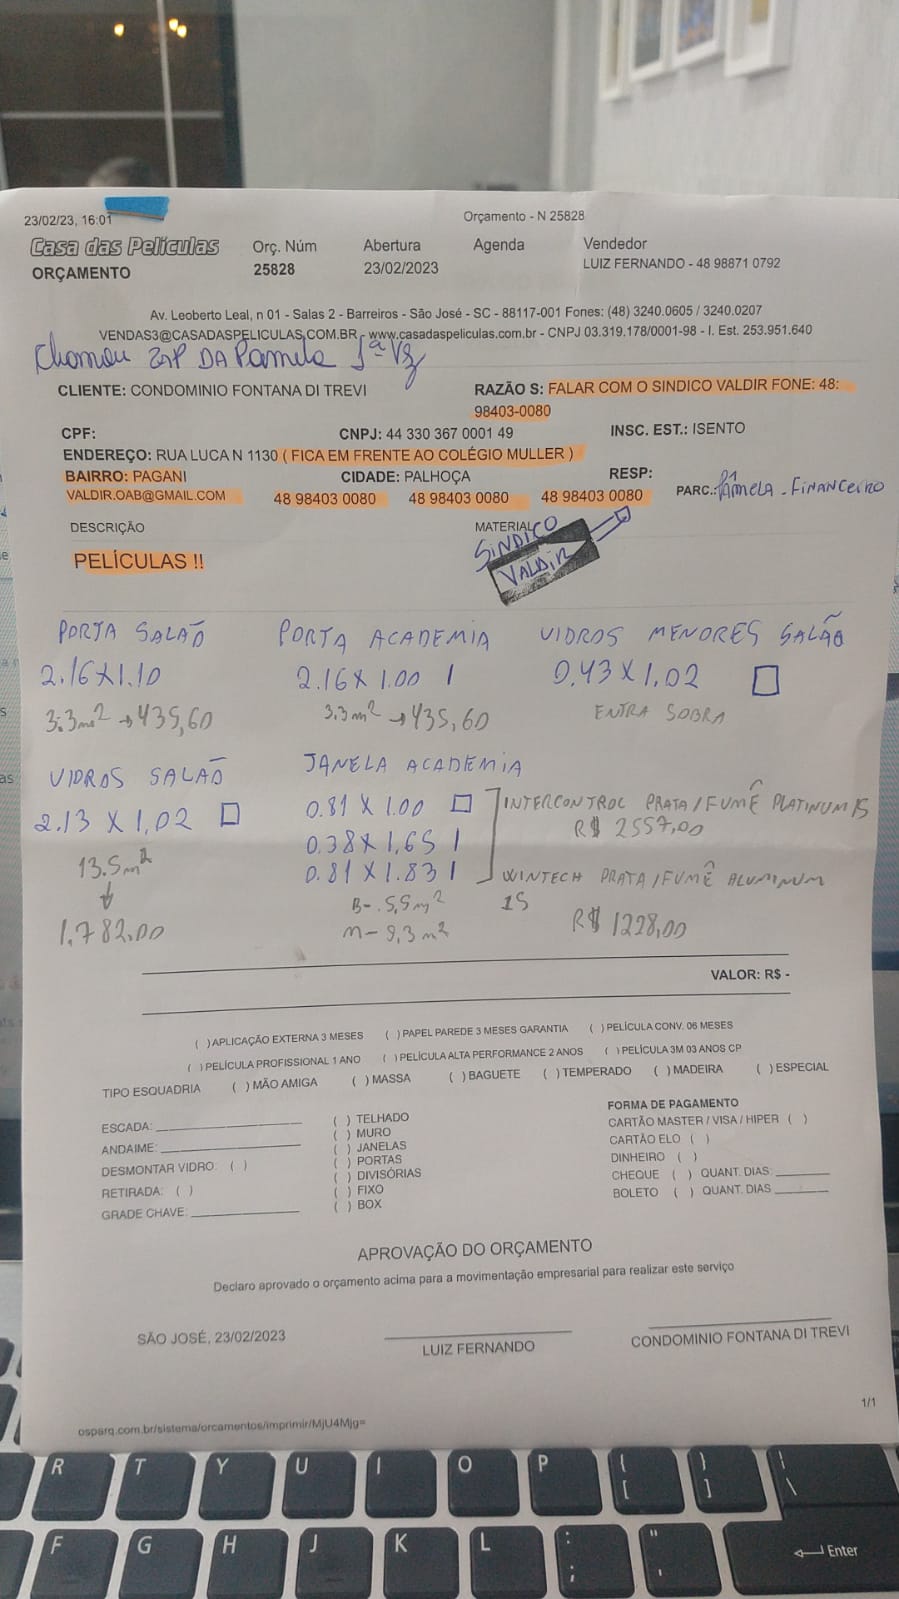 23/02/23, 16:01 Orçamento - N 25828
Casa das Películas Orç. Núm Abertura Agenda Vendedor
ORÇAMENTO 25828 23/02/2023 LUIZ FERNANDO - 48 98871 0792
Av. Leoberto Leal, n 01 - Salas 2 - Barreiros - São José - SC - 88117-001 Fones: (48) 3240.0605 / 3240.0207
VENDAS3@CASADASPELICULAS.COM.BR - www.casadaspeliculas.com.br - CNPJ 03.319.178/0001-98 - I. Est. 253.951.640
Chamou ZAP DA Pamela 1ª Vz
CLIENTE: CONDOMINIO FONTANA DI TREVI RAZÃO S: FALAR COM O SINDICO VALDIR FONE: 48:
98403-0080
CPF: CNPJ: 44 330 367 0001 49 INSC. EST.: ISENTO
ENDEREÇO: RUA LUCA N 1130 ( FICA EM FRENTE AO COLÉGIO MULLER )
BAIRRO: PAGANI CIDADE: PALHOÇA RESP:
VALDIR.OAB@GMAIL.COM 48 98403 0080 48 98403 0080 48 98403 0080 PARC.: PÂMELA - FINANCEIRO
DESCRIÇÃO MATERIAL
PELÍCULAS !! SINDICO
VALDIR
PORTA SALÃO PORTA ACADEMIA VIDROS MENORES SALÃO
2.16X1.10 2.16X 1.00 1 0.43 X 1,02
3.3m² → 435,60 3.3m² → 435,60 ENTRA SOBRA
VIDROS SALÃO JANELA ACADEMIA
2.13 X 1,02 0.81 X 1.00 INTERCONTROL PRATA/FUMÊ PLATINUM 15
0.38X1,65 1 R$ 2557,00
13.5m² 0.81 X1.83 1 WINTECH PRATA/FUMÊ ALUMINUM
↓ B- 5,5m² 15
1.782,00 M- 9,3m² R$ 1228,00
VALOR: R$ -
( )APLICAÇÃO EXTERNA 3 MESES ( )PAPEL PAREDE 3 MESES GARANTIA ( )PELÍCULA CONV. 06 MESES
( )PELÍCULA PROFISSIONAL 1 ANO ( )PELÍCULA ALTA PERFORMANCE 2 ANOS ( )PELÍCULA 3M 03 ANOS CP
TIPO ESQUADRIA ( )MÃO AMIGA ( )MASSA ( )BAGUETE ( )TEMPERADO ( )MADEIRA ( )ESPECIAL
FORMA DE PAGAMENTO
ESCADA: ( ) TELHADO CARTÃO MASTER / VISA / HIPER ( )
( ) MURO
ANDAIME: ( ) JANELAS CARTÃO ELO ( )
( ) PORTAS DINHEIRO ( )
DESMONTAR VIDRO: ( ) ( ) DIVISÓRIAS CHEQUE ( ) QUANT. DIAS:
RETIRADA: ( ) ( ) FIXO BOLETO ( ) QUANT. DIAS
GRADE CHAVE: ( ) BOX
APROVAÇÃO DO ORÇAMENTO
Declaro aprovado o orçamento acima para a movimentação empresarial para realizar este serviço
SÃO JOSÉ, 23/02/2023
LUIZ FERNANDO CONDOMINIO FONTANA DI TREVI
1/1
osparq.com.br/sistema/orcamentos/imprimir/MjU4Mjg=
R T Y U I O P { [ } ] | \
F G H J K L : ; " ' Enter